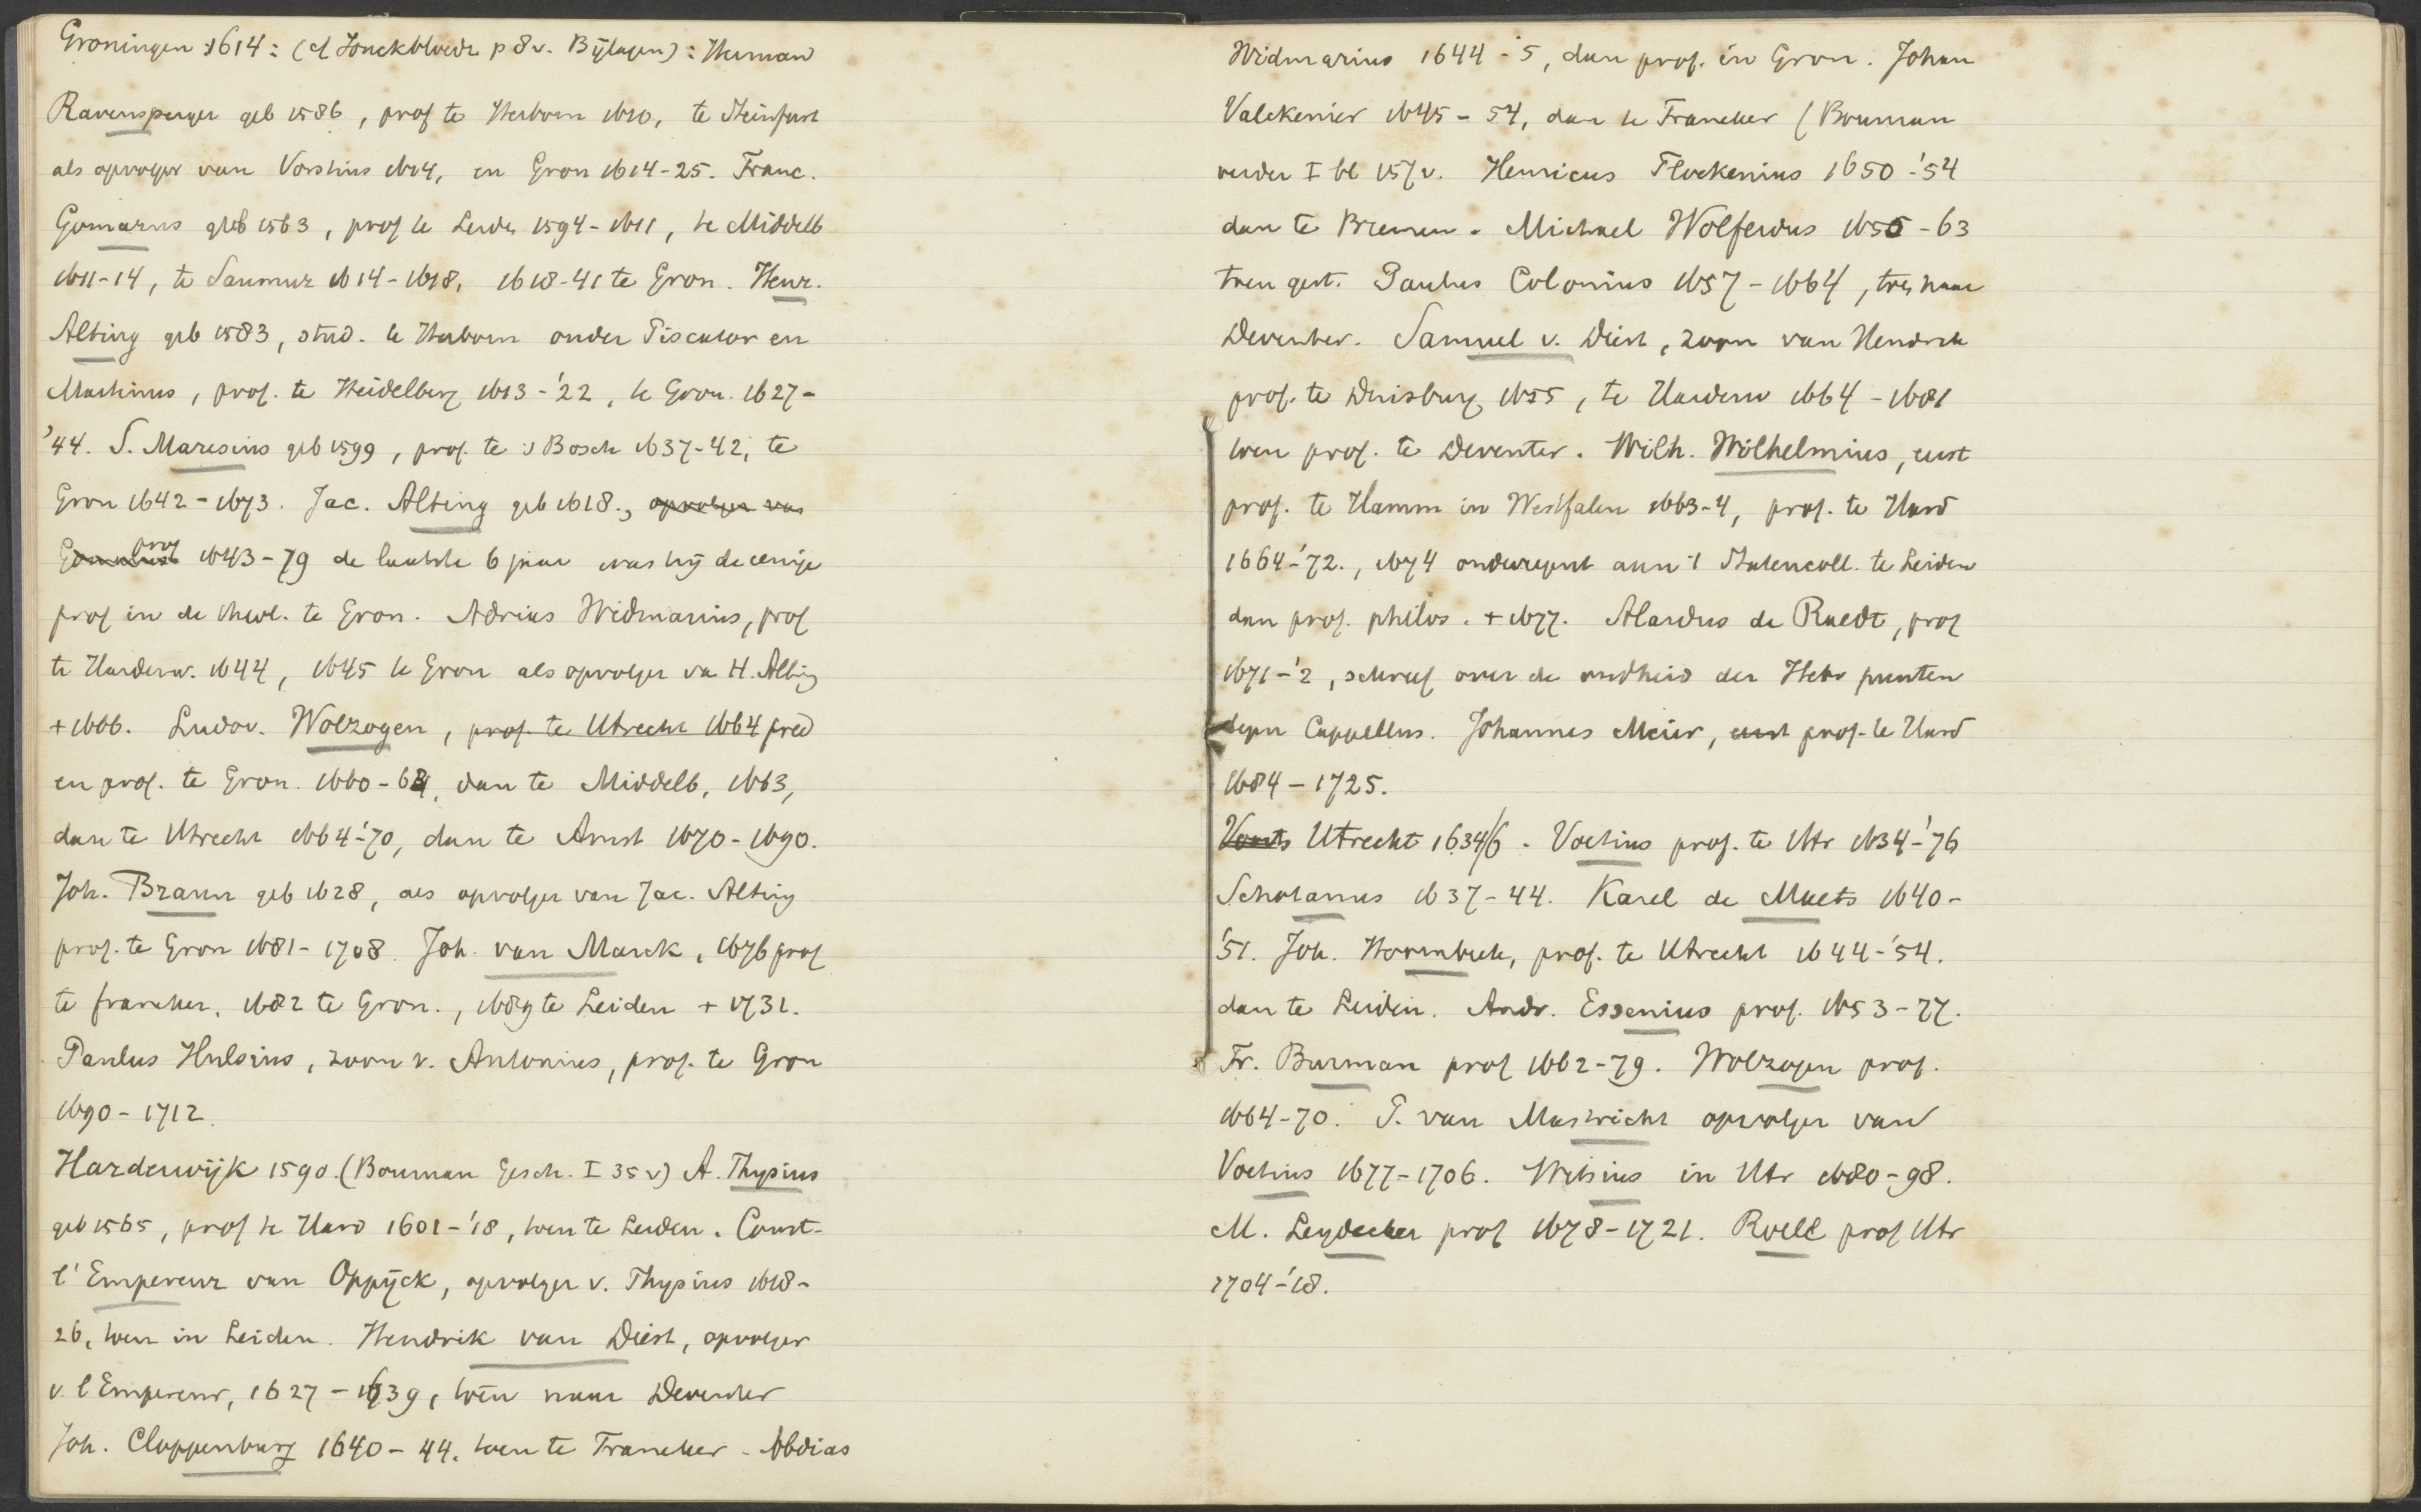 Groningen 1614: (cf Jonckbloedt p 8 v. Bijlagen): Herman
Ravensperger geb 1586, prof te Herborn 1610, te Steinfurt
als opvolger van Vorstius 1614, en Gron 1614-25. Franc.
Gomarus geb 1563, prof te Leiden 1594-1611, te Middelb
1611-14, te Saumur 1614-1618, 1618-41 te Gron. Henr.
Alting geb 1583, stud. te Herborn onder Piscator en
Martinius, prof. te Heidelberg 1613-'22, te Gron. 1627-
'44. S. Maresius geb 1599, prof. te 's Bosch 1637-42, te
Gron 1642-1673. Jac. Alting geb 1618., opvolger van
Gomarus prof 1643-79 de laatste 6 jaar was hij de eenige
prof in de theol. te Gron. Abdias Widmarius, prof
te Harderw. 1644, 1645 te Gron als opvolger van H. Alting
+ 1666. Ludov. Wolzogen, prof. te Utrecht 1664 pred
en prof. te Gron. 1660-64, dan te Middelb, 1663,
dan te Utrecht 1664-'70, dan te Amst 1670-1690.
Joh. Braun geb 1628, als opvolger van Jac. Alting
prof. te Gron 1681-1708. Joh. van Marck, 1676 prof
te franeker, 1682 te Gron., 1689 te Leiden + 1731.
Paulus Hulsius, zoon v. Antonius, prof. te Gron
1690-1712.
Harderwijk 1590. (Bouman Gesch. I 35 v) A. Thysius
geb 1565, prof te Hard 1601-'18, toen te Leiden. Const-
l'Empereur van Oppijck, opvolger v. Thysius 1618-
26, toen in Leiden. Hendrik van Diest, opvolger
v. l'Empereur, 1627-1639, toen naar Deventer
Joh. Cloppenburg 1640-44. toen te Franeker - Abdias
Widmarius 1644-'5, dan prof. in Gron. Johan
Valckenier 1645-54, dan te Franeker (Bouman
verder I bl 157 v. Henricus Flockenius 1650-'54
dan te Bremen. Michael Wolferdus 1655-63
toen gest. Paulus Colonius 1657-1664, toen naar
Deventer. Samuel v. Diest, zoon van Hendrik
prof. te Duisburg 1655, te Harderw 1664-1681
toen prof. te Deventer. Wilh. Wilhelmius, eerst
prof. te Hamm in Westfalen 1663-4, prof. te Hard
1664-'72., 1674 onderregent aan 't Statencoll. te Leiden
dan prof. philos. + 1677. Alardus de Raedt, prof
1671-'2, schreef over de oudheid der Hebr punten
tegen Cappellus. Johannes Meier, eerst prof. te Hard
1684-1725.
Voorts Utrecht 1634/6. Voetius prof. te Utr 1634-'76
Schotanus 1637-44. Karel de Maets 1640-
'51. Joh. Hoornbeek, prof. te Utrecht 1644-'54.
dan te Leiden. Andr. Essenius prof. 1653-77.
Fr. Burman prof 1662-79. Wolzogen prof.
1664-70. P. van Mastricht opvolger van
Voetius 1677-1706. Witsius in Utr 1680-98.
M. Leydecker prof 1678-1721. Roell prof Utr
1704-'18.